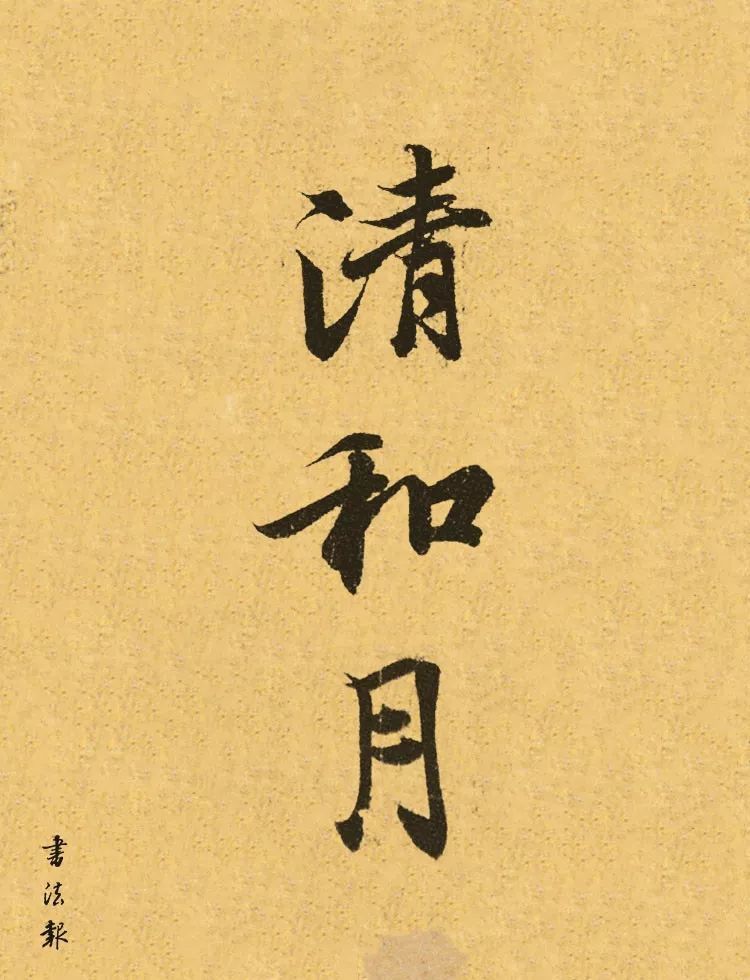 清和月
書法報